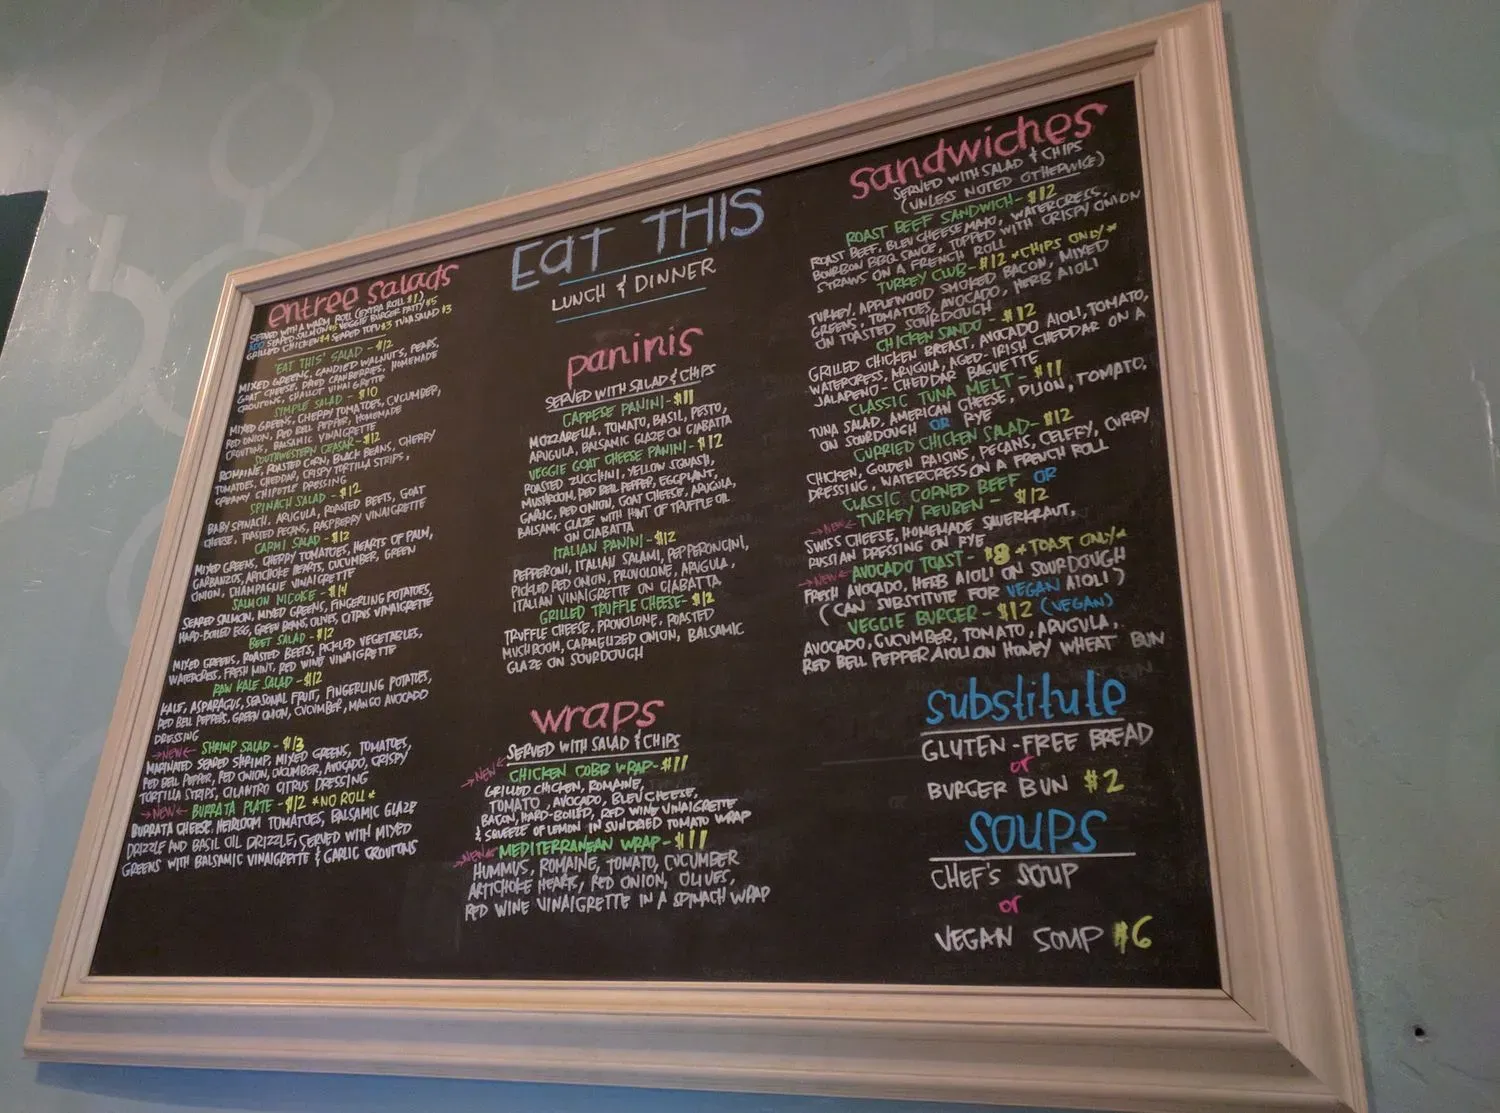 EAT THIS
LUNCH & DINNER
entree salads
SERVED WITH A WARM ROLL (EXTRA ROLL $1)
ADD SEARED SALMON $5 VEGGIE BURGER PATTY $5
GRILLED CHICKEN $4 SEARED TOFU $3 TUNA SALAD $3
'EAT THIS' SALAD - $12
MIXED GREENS, CANDIED WALNUTS, PEARS,
GOAT CHEESE, DRIED CRANBERRIES, HOMEMADE
CROUTONS, SHALLOT VINAIGRETTE
SIMPLE SALAD - $10
MIXED GREENS, CHERRY TOMATOES, CUCUMBER,
RED ONION, RED BELL PEPPER, HOMEMADE
CROUTONS, BALSAMIC VINAIGRETTE
SOUTHWESTERN CEASAR - $12
ROMAINE, ROASTED CORN, BLACK BEANS, CHERRY
TOMATOES, CHEDDAR, CRISPY TORTILLA STRIPS,
CREAMY CHIPOTLE DRESSING
SPINACH SALAD - $12
BABY SPINACH, ARUGULA, ROASTED BEETS, GOAT
CHEESE, TOASTED PECANS, RASPBERRY VINAIGRETTE
CAPMI SALAD - $12
MIXED GREENS, CHERRY TOMATOES, HEARTS OF PALM,
GARBANZOS, ARTICHOKE HEARTS, CUCUMBER, GREEN
ONION, CHAMPAGNE VINAIGRETTE
SALMON NICOISE - $14
SEARED SALMON, MIXED GREENS, FINGERLING POTATOES,
HARD-BOILED EGG, GREEN BEANS, OLIVES, CITRUS VINAIGRETTE
BEET SALAD - $12
MIXED GREENS, ROASTED BEETS, PICKLED VEGETABLES,
WATERCRESS, FRESH MINT, RED WINE VINAIGRETTE
RAW KALE SALAD - $12
KALE, ASPARAGUS, SEASONAL FRUIT, FINGERLING POTATOES,
RED BELL PEPPERS, GREEN ONION, CUCUMBER, MANGO AVOCADO
DRESSING
→NEW← SHRIMP SALAD - $13
MARINATED SEARED SHRIMP, MIXED GREENS, TOMATOES,
RED BELL PEPPER, RED ONION, CUCUMBER, AVOCADO, CRISPY
TORTILLA STRIPS, CILANTRO CITRUS DRESSING
→NEW← BURRATA PLATE - $12 *NO ROLL*
BURRATA CHEESE, HEIRLOOM TOMATOES, BALSAMIC GLAZE
DRIZZLE AND BASIL OIL DRIZZLE, SERVED WITH MIXED
GREENS WITH BALSAMIC VINAIGRETTE & GARLIC CROUTONS
paninis
SERVED WITH SALAD & CHIPS
CAPRESE PANINI - $11
MOZZARELLA, TOMATO, BASIL, PESTO,
ARUGULA, BALSAMIC GLAZE ON CIABATTA
VEGGIE GOAT CHEESE PANINI - $12
ROASTED ZUCCHINI, YELLOW SQUASH,
MUSHROOM, RED BELL PEPPER, EGGPLANT,
GARLIC, RED ONION, GOAT CHEESE, ARUGULA,
BALSAMIC GLAZE WITH HINT OF TRUFFLE OIL
ON CIABATTA
ITALIAN PANINI - $12
PEPPERONI, ITALIAN SALAMI, PEPPERONCINI,
PICKLED RED ONION, PROVOLONE, ARUGULA,
ITALIAN VINAIGRETTE ON CIABATTA
GRILLED TRUFFLE CHEESE - $12
TRUFFLE CHEESE, PROVOLONE, ROASTED
MUSHROOM, CARMELIZED ONION, BALSAMIC
GLAZE ON SOURDOUGH
wraps
SERVED WITH SALAD & CHIPS
→NEW← CHICKEN COBB WRAP - $11
GRILLED CHICKEN, ROMAINE,
TOMATO, AVOCADO, BLEU CHEESE,
BACON, HARD-BOILED, RED WINE VINAIGRETTE
& SQUEEZE OF LEMON IN SUNDRIED TOMATO WRAP
→NEW← MEDITERRANEAN WRAP - $11
HUMMUS, ROMAINE, TOMATO, CUCUMBER
ARTICHOKE HEARTS, RED ONION, OLIVES,
RED WINE VINAIGRETTE IN A SPINACH WRAP
sandwiches
SERVED WITH SALAD & CHIPS
(UNLESS NOTED OTHERWISE)
ROAST BEEF SANDWICH - $12
ROAST BEEF, BLEU CHEESE MAYO, WATERCRESS,
BOURBON BBQ SAUCE, TOPPED WITH CRISPY ONION
STRAWS ON A FRENCH ROLL
TURKEY CLUB - $12 *CHIPS ONLY*
TURKEY, APPLEWOOD SMOKED BACON, MIXED
GREENS, TOMATOES, AVOCADO, HERB AIOLI
ON TOASTED SOURDOUGH
CHICKEN SANDO - $12
GRILLED CHICKEN BREAST, AVOCADO AIOLI, TOMATO,
WATERCRESS, ARUGULA, AGED-IRISH CHEDDAR ON A
JALAPENO-CHEDDAR BAGUETTE
CLASSIC TUNA MELT - $11
TUNA SALAD, AMERICAN CHEESE, DIJON, TOMATO,
ON SOURDOUGH OR RYE
CURRIED CHICKEN SALAD - $12
CHICKEN, GOLDEN RAISINS, PECANS, CELERY, CURRY
DRESSING, WATERCRESS ON A FRENCH ROLL
CLASSIC CORNED BEEF OR
→NEW← TURKEY REUBEN - $12
SWISS CHEESE, HOMEMADE SAUERKRAUT,
RUSSIAN DRESSING ON RYE
→NEW← AVOCADO TOAST - $8 *TOAST ONLY*
FRESH AVOCADO, HERB AIOLI ON SOURDOUGH
(CAN SUBSTITUTE FOR VEGAN AIOLI)
VEGGIE BURGER - $12 (VEGAN)
AVOCADO, CUCUMBER, TOMATO, ARUGULA,
RED BELL PEPPER AIOLI ON HONEY WHEAT BUN
substitute
GLUTEN-FREE BREAD
or
BURGER BUN $2
SOUPS
CHEF'S SOUP
or
VEGAN SOUP $6